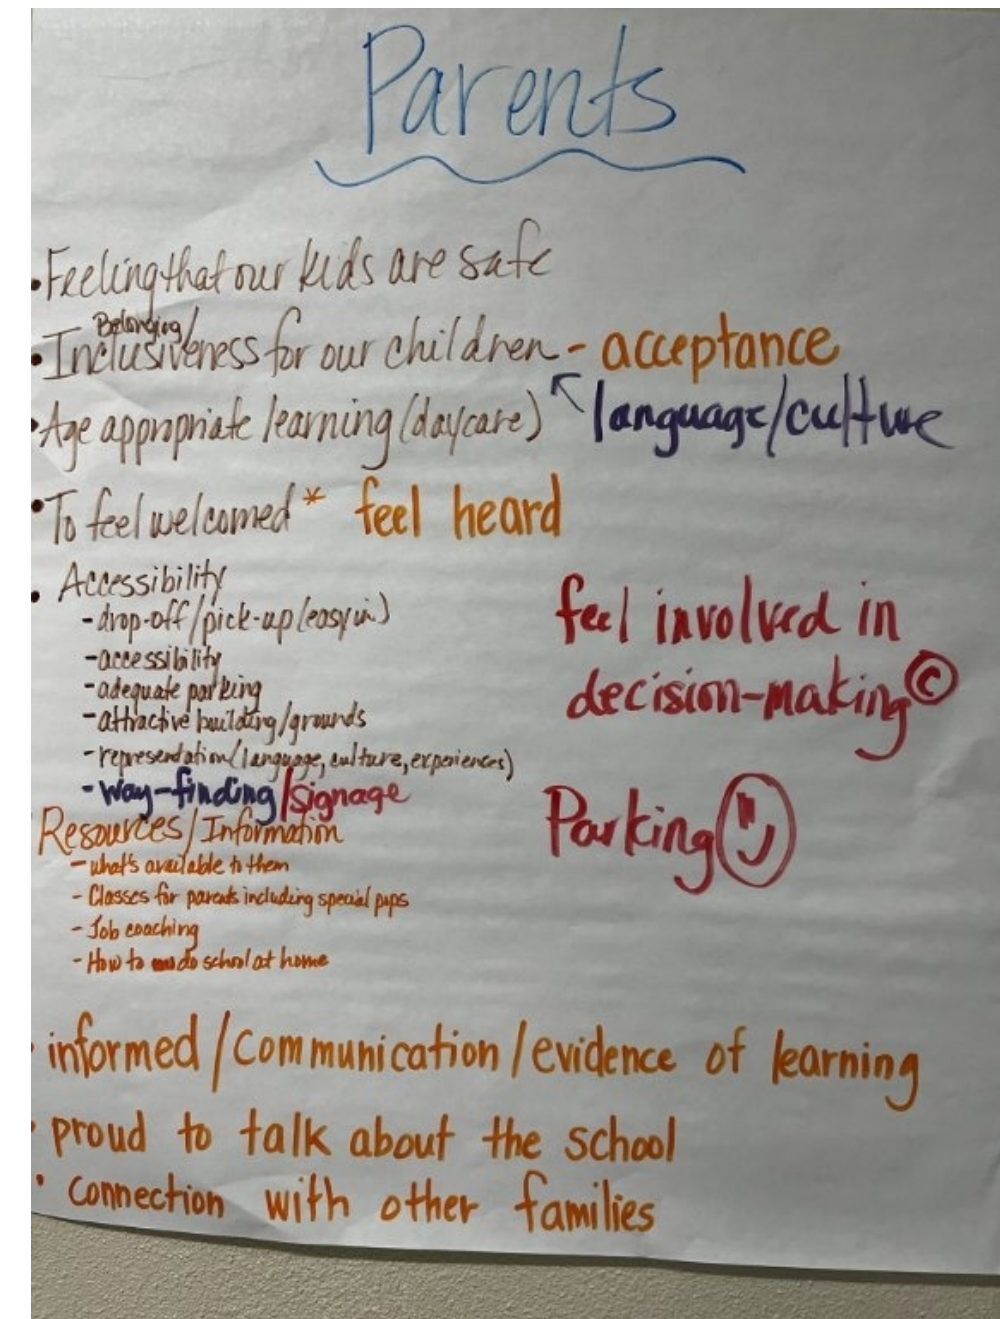 Parents
• Feeling that our kids are safe
Belonging/
• Inclusiveness for our children - acceptance
↖ language/culture
• Age appropriate learning (daycare)
• To feel welcomed * feel heard
• Accessibility
- drop-off/pick-up (easy in)
- accessibility
- adequate parking
- attractive building/grounds
- representation (language, culture, experiences)
- way-finding/signage
feel involved in
decision-making ©
Parking
Resources/Information
- what's available to them
- Classes for parents including special pops
- Job coaching
- How to do school at home
• informed/communication/evidence of learning
• proud to talk about the school
• connection with other families